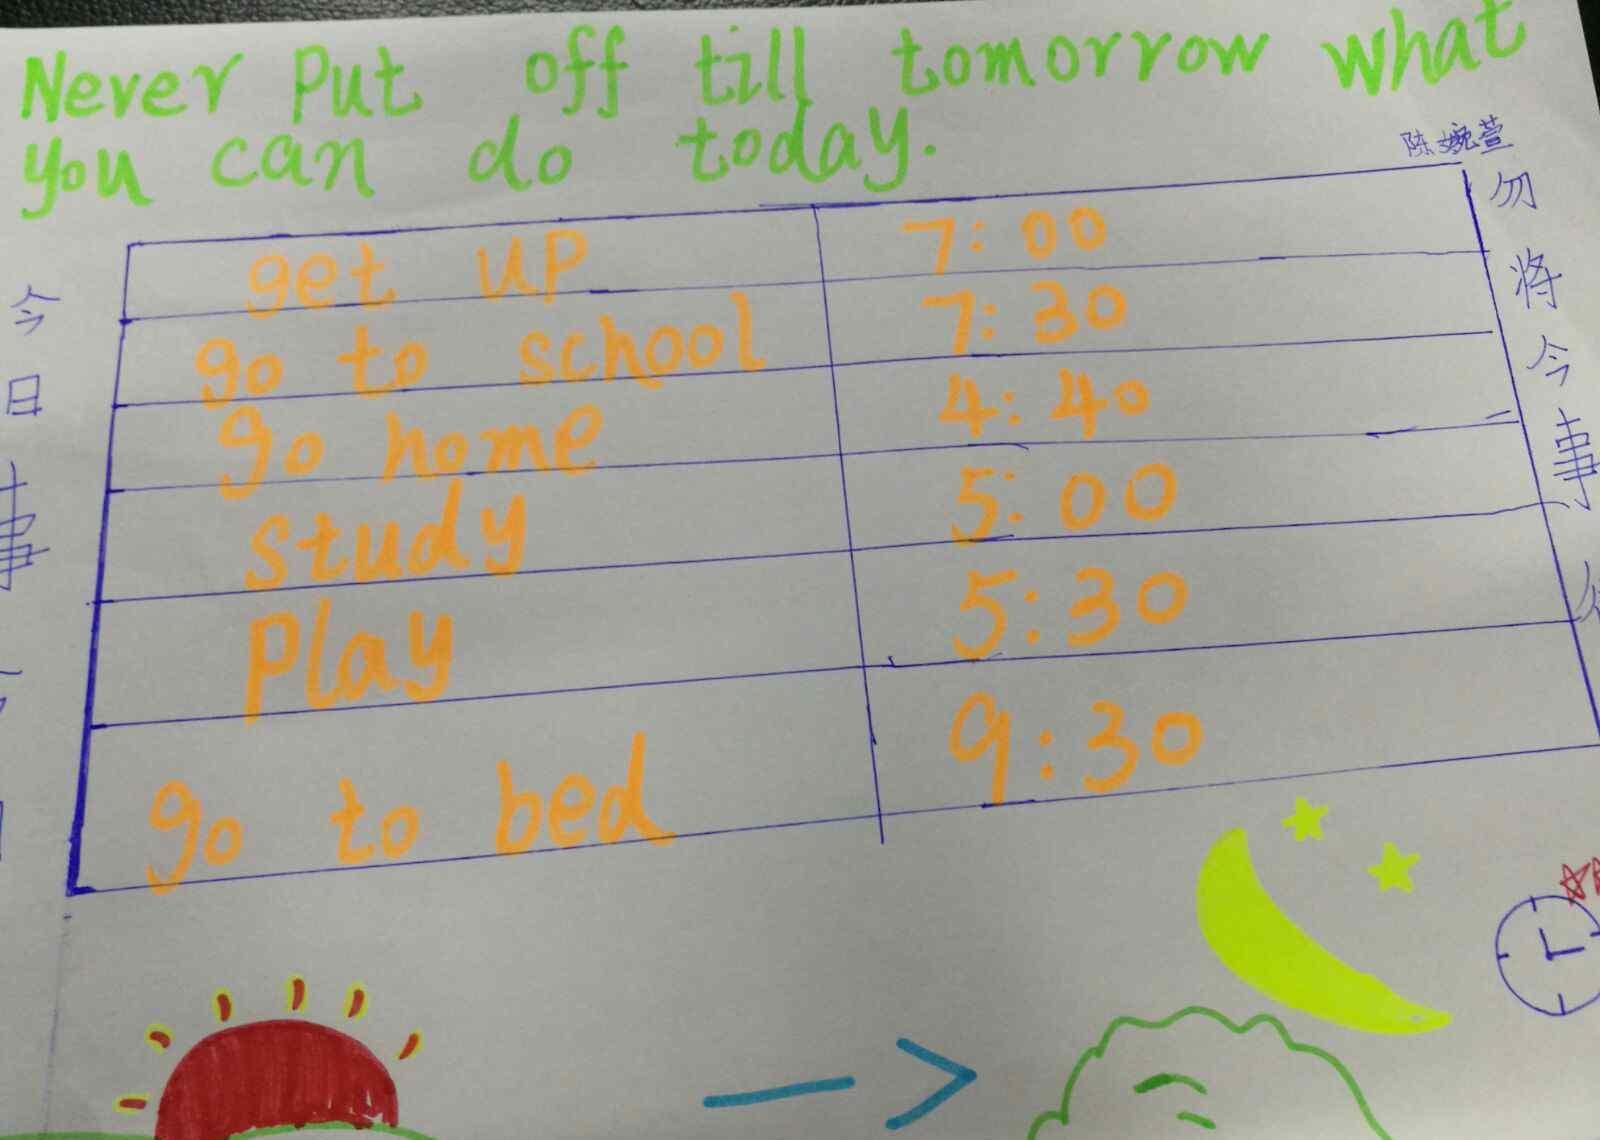 Never Put off till tomorrow what
you can do today.
陈婉萱
get up 7:00
go to school 7:30
go home 4:40
study 5:00
Play 5:30
go to bed 9:30
今日事
勿将今事